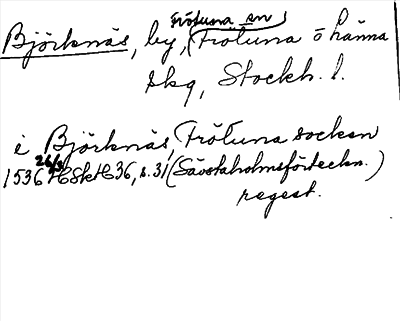 Frötuna sn
Björknäs, by, (Frötuna o Länna
skg, Stockh. l.
i Björknäs, Frötuna socken
26/8
1536 HSkH 36, s. 31 (Sävstaholmsförteckn.)
regest.